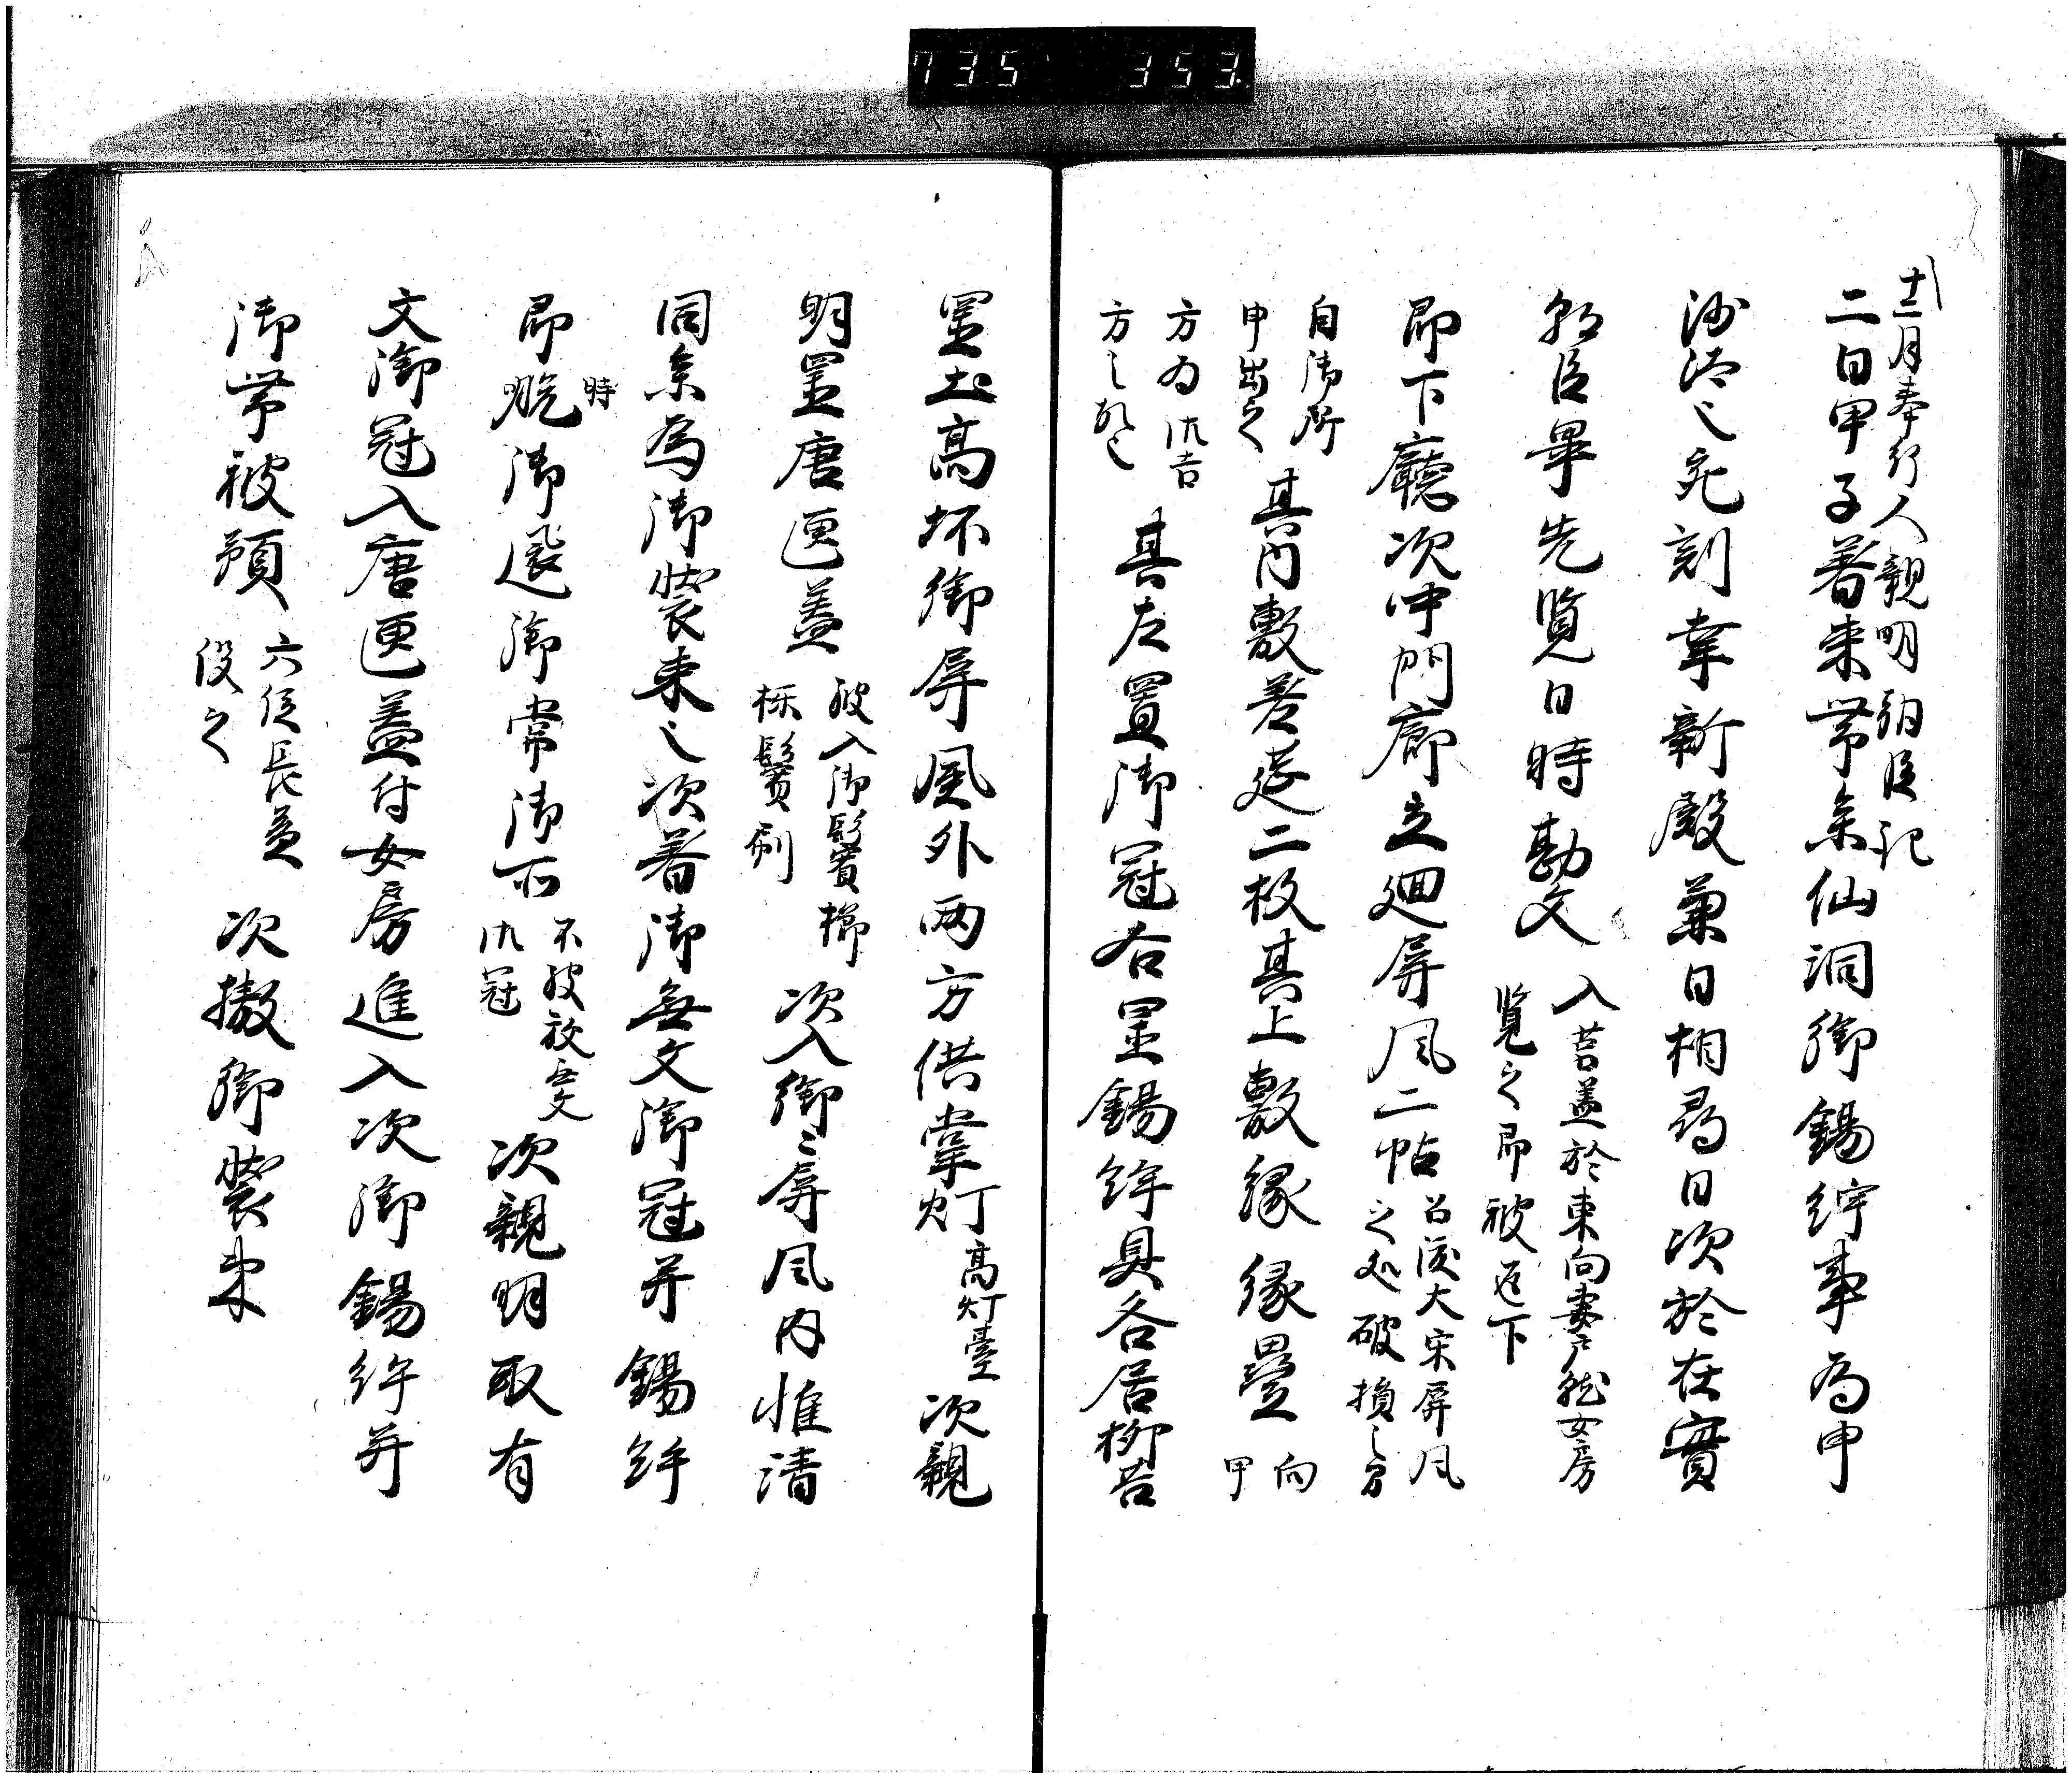 735 353
十二月奉行人親明朝臣記
二日甲子着束帯参仙洞御錫紵事為申
沙汰也先刻幸新殿兼日相尋日次於在實
朝臣畢先覧日時勘文
入莒蓋於東向妻戸就女房
覧之即被返下
即下廳次中門廊立廻屏風二帖
召渡大宋屏風
之処破損之間
自御所
申出之
其内敷莚二枚其上敷縁縁畳
向
甲
方為凶吉
方之故也
其左置御冠右置錫紵具各居柳筥
置土高坏御屏風外両方供掌灯
高灯臺
次親
明置唐匣蓋
被入御鬢櫛
鬢刷
次入御々屏風内惟清
同参為御装束也次着御無文御冠并錫紵
即脱御還御常御所
時
不被放無文
御冠
次親明取有
文御冠入唐匣蓋付女房進入次御錫紵并
御帯被預
六位長盖
役之
次撤御装束